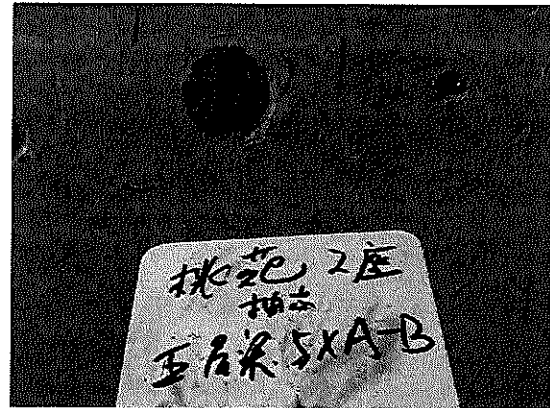 桃苑 2座
抽芯
五层梁 5XA-B